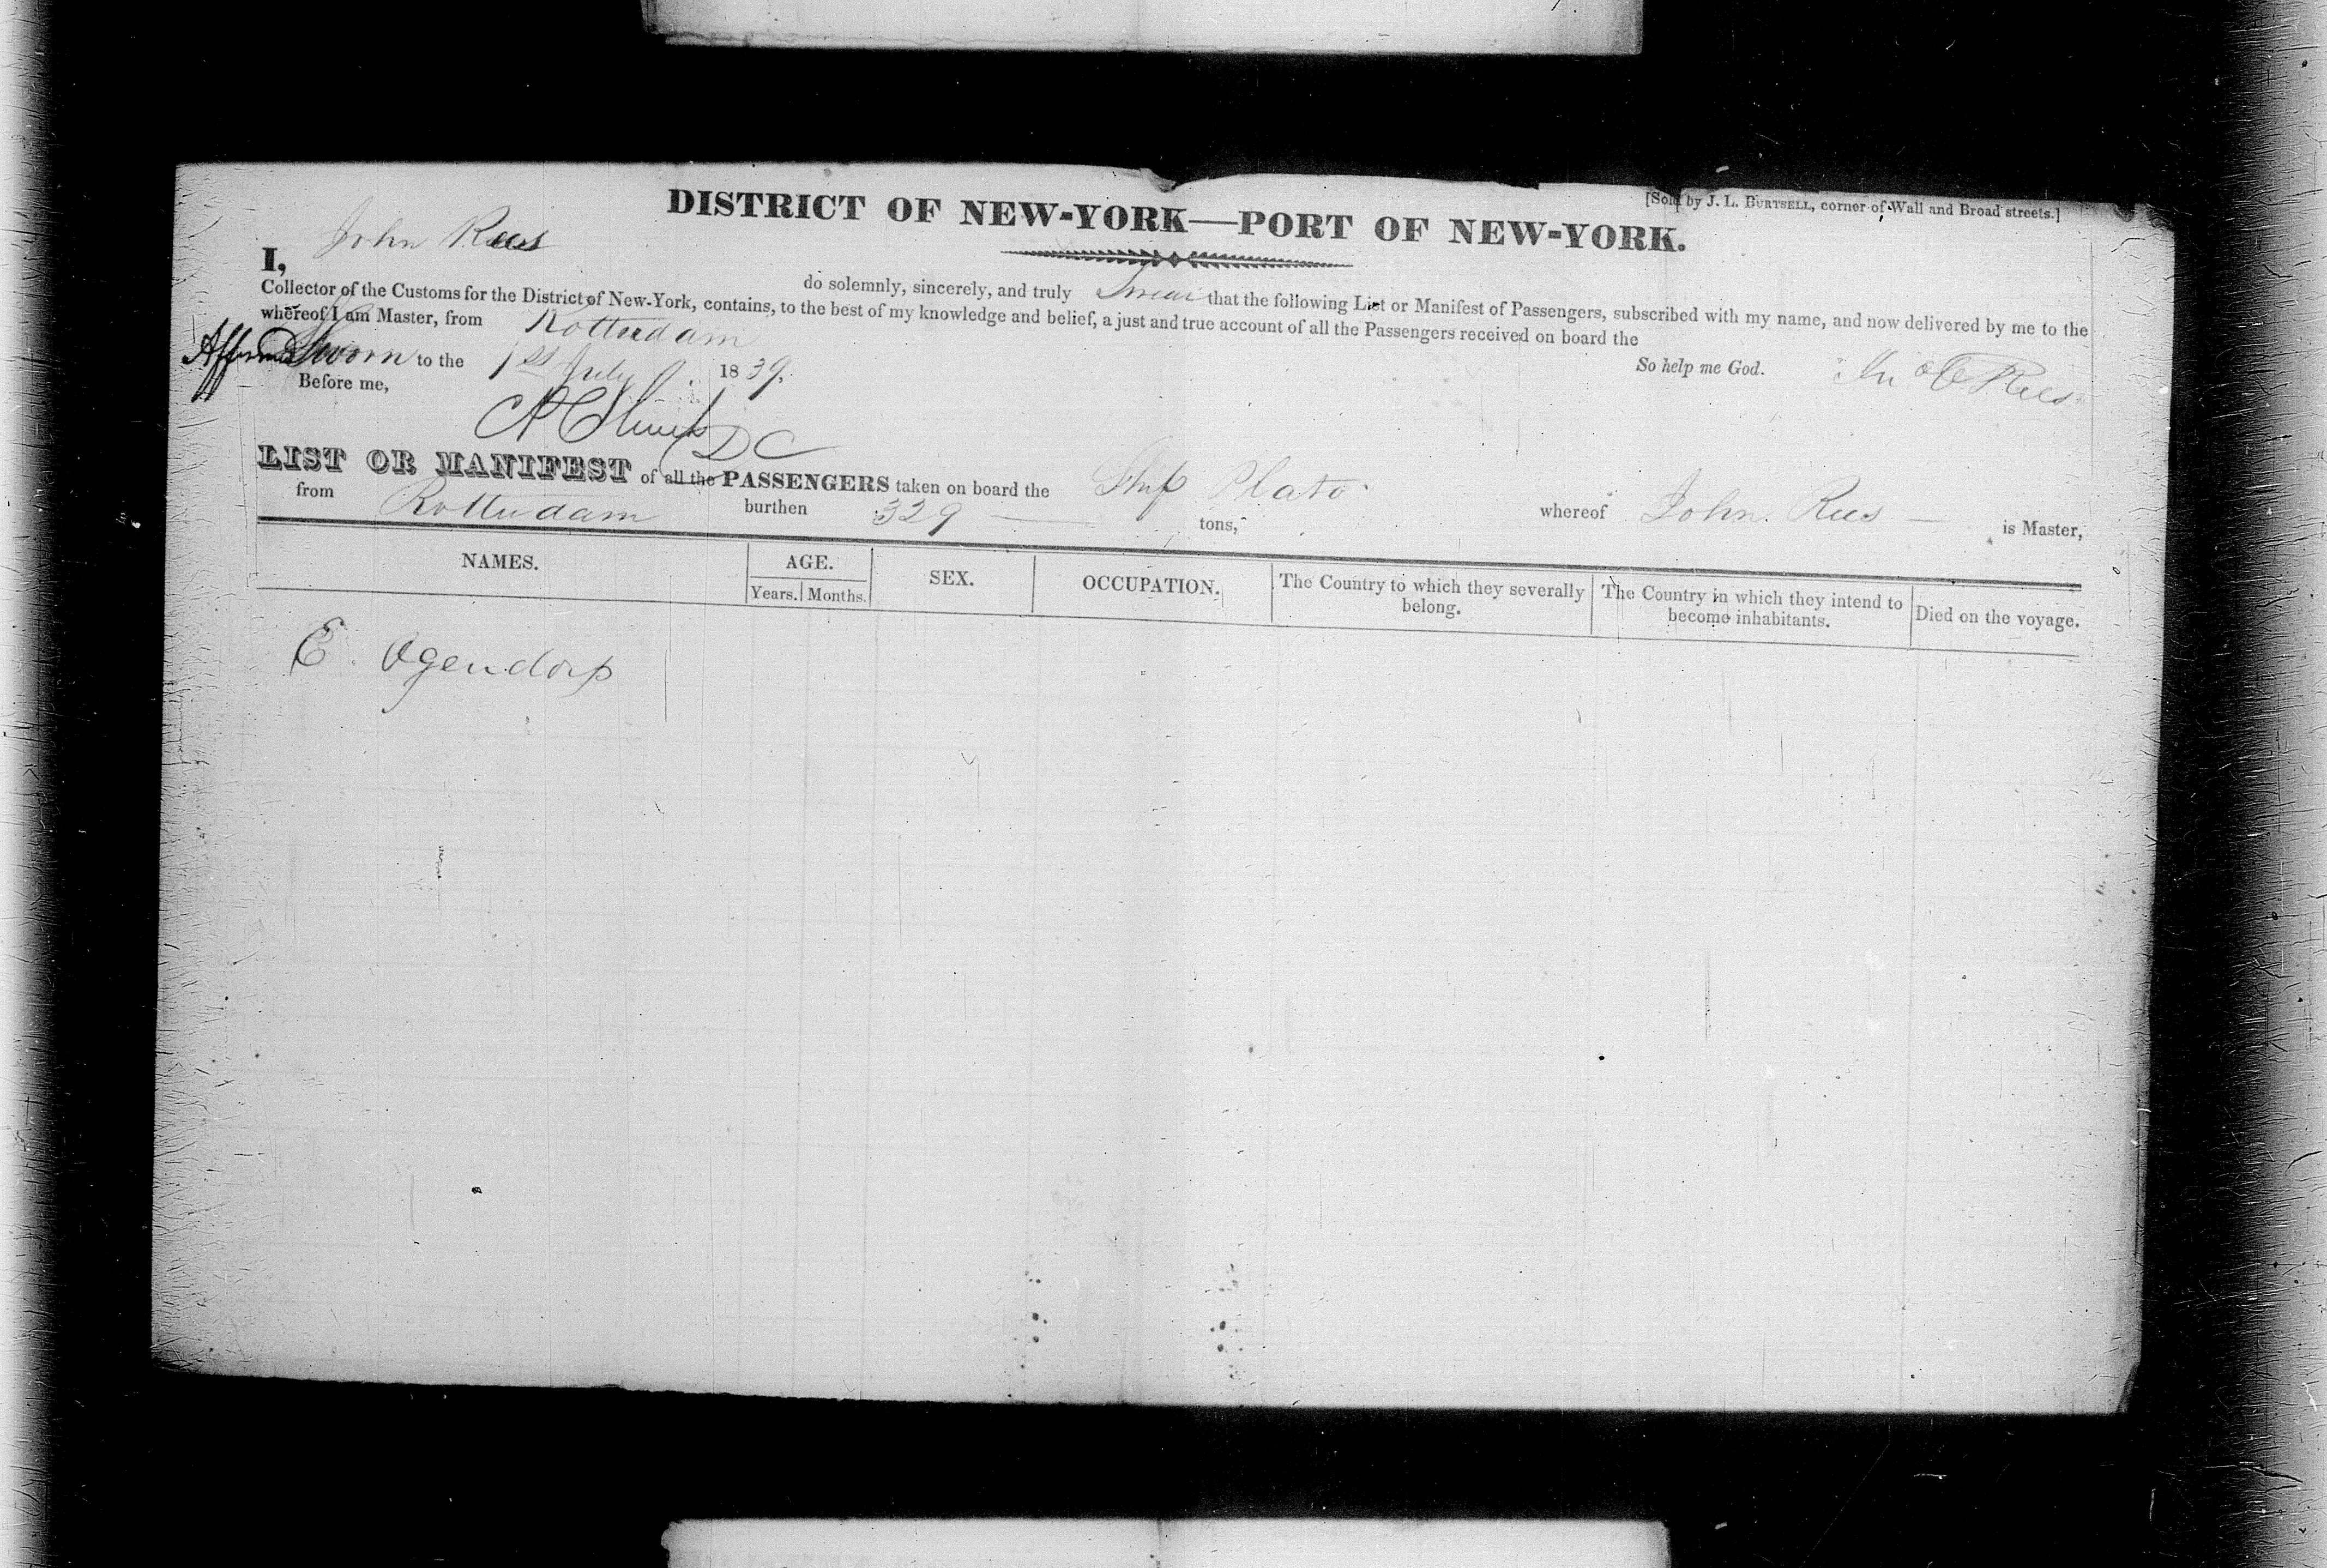 [Sold by J. L. BURTSELL, corner of Wall and Broad streets.]
DISTRICT OF NEW-YORK—PORT OF NEW-YORK.
I, John Rees do solemnly, sincerely, and truly Swear that the following List or Manifest of Passengers, subscribed with my name, and now delivered by me to the
Collector of the Customs for the District of New-York, contains, to the best of my knowledge and belief, a just and true account of all the Passengers received on board the
whereof I am Master, from Rotterdam
Sworn to the 1st July 1839. So help me God. Jno Rees
Before me,
DC
LIST OR MANIFEST of all the PASSENGERS taken on board the Ship Plato whereof John Rees is Master,
from Rotterdam burthen 329 tons,
NAMES. AGE. SEX. OCCUPATION. The Country to which they severally belong. The Country in which they intend to become inhabitants. Died on the voyage.
Years. Months.
E. Ogendorp